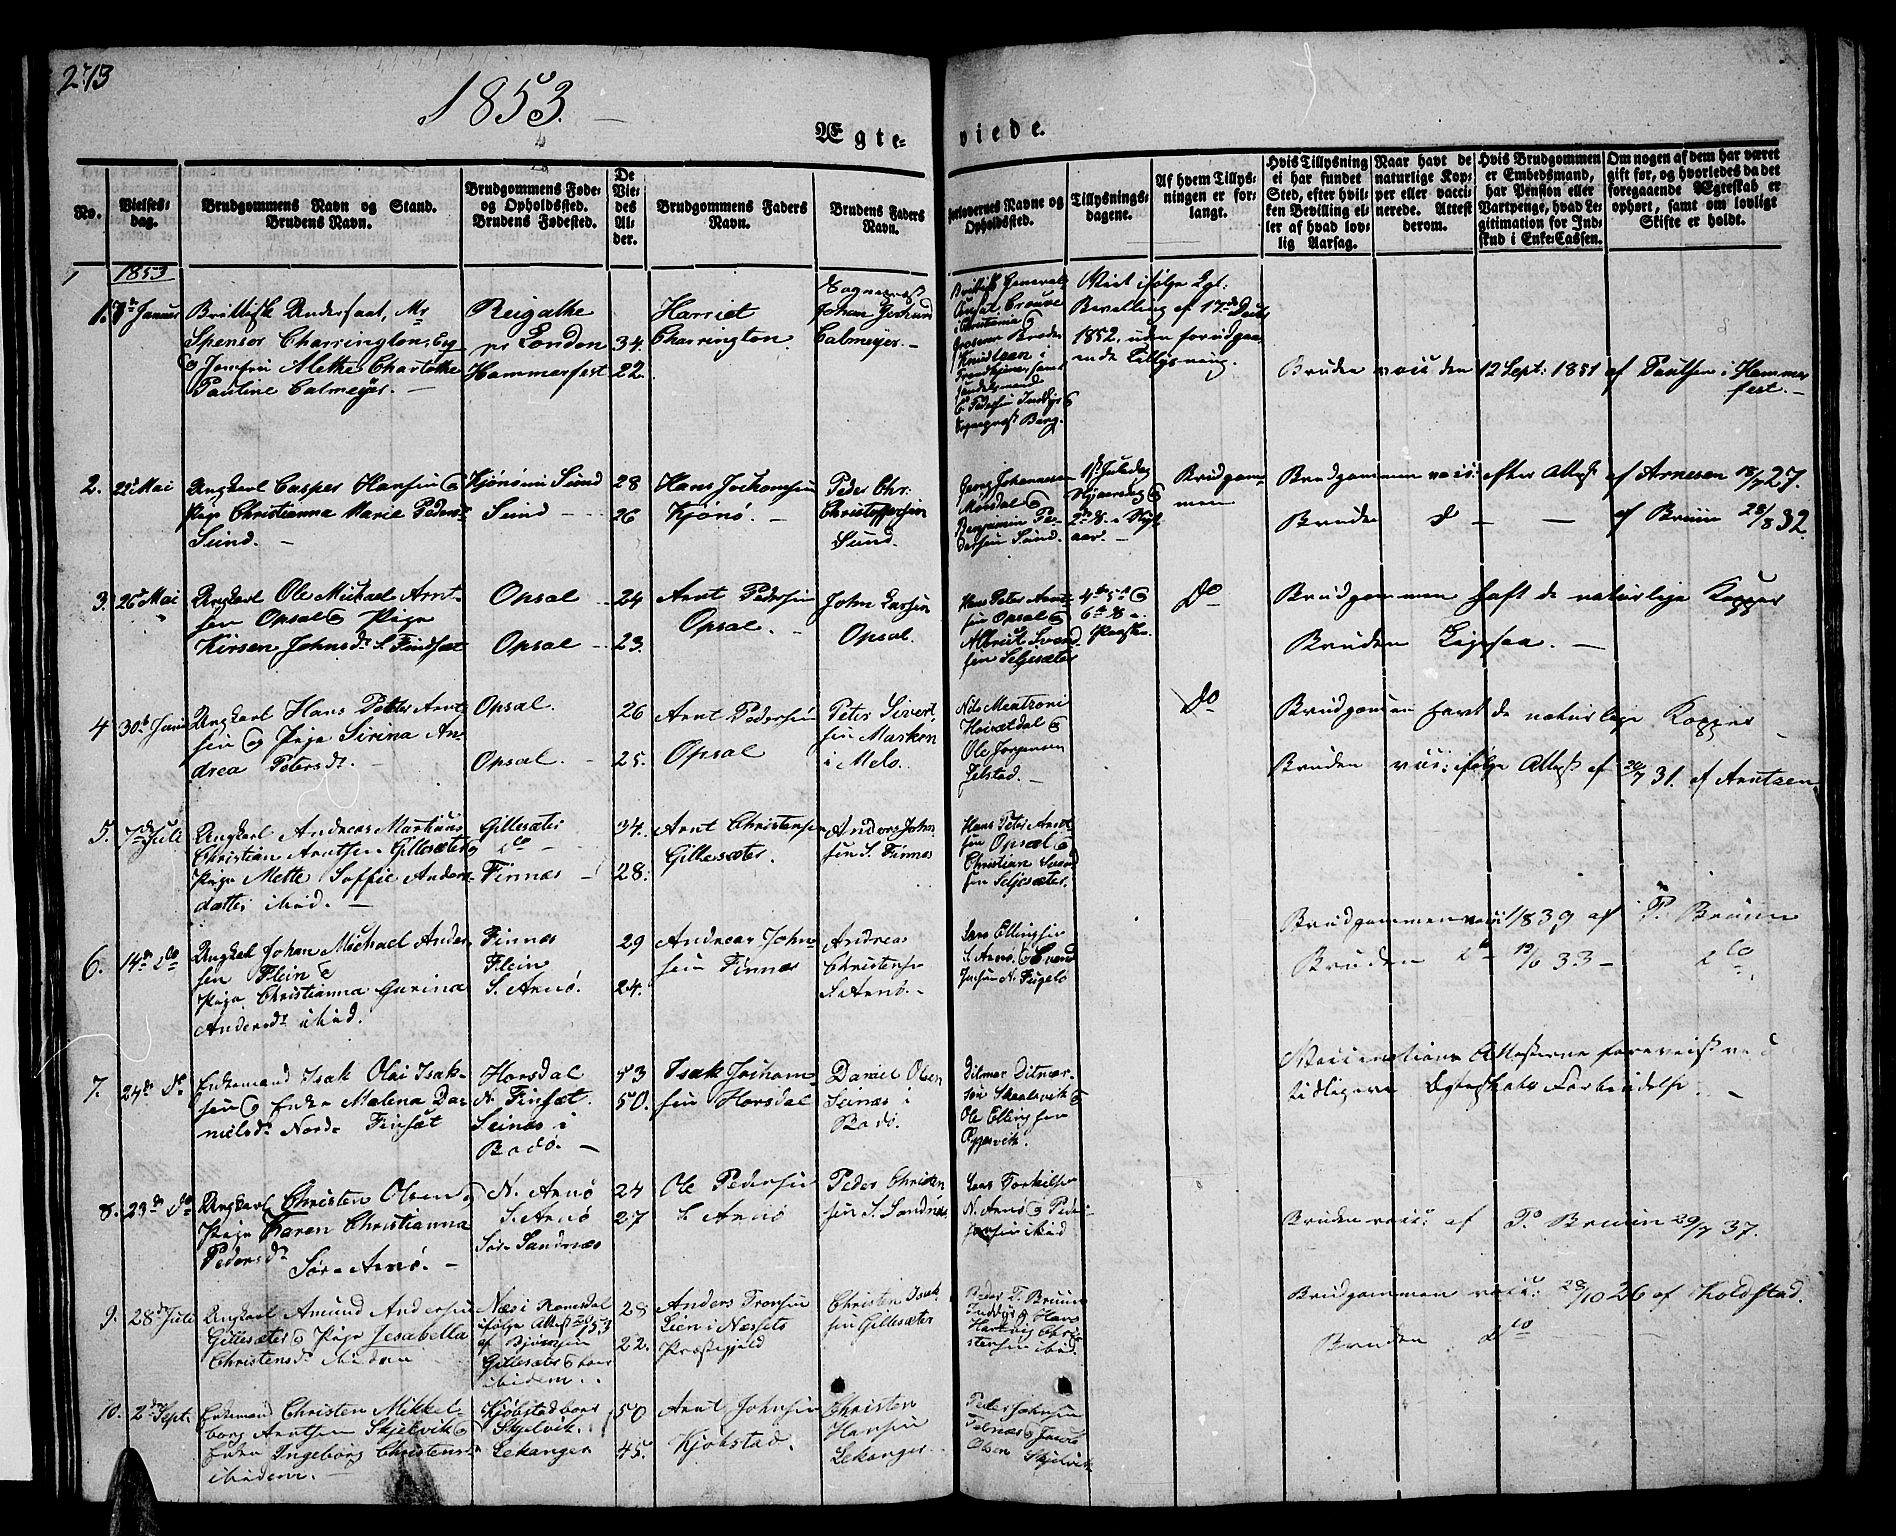 273
1853.
Ægte- viede.
No.
Vielses-
dag.
Brudgommens Navn og Stand.
Brudens Navn.
Brudgommens Føde-
og Opholdssted.
Brudens Fødested.
De
Vie-
des
Al-
der.
Brudgommens Faders
Navn.
Brudens Faders
Navn.
Forlovernes Navne og
Opholdssted.
Tillysnings-
dagene.
Af hvem Tillys-
ningen er for-
langt.
Hvis Tillysning
ei har fundet
Sted, efter hvil-
ken Bevilling el-
ler af hvad lov-
lig Aarsag.
Naar havt de
naturlige Kop-
per eller vacci-
nerede. Attest
derom.
Hvis Brudgommen
er Embedsmand,
har Pension eller
Vartpenge, hvad Le-
gitimation for Ind-
skud i Enke-Cassen.
Om nogen af dem har været
gift før, og hvorledes da det
foregaaende Ægteskab er
ophørt, samt om lovligt
Skifte er holdt.
1853
1. Januar
Brittisk Undersaat, Mr
Spensor Charrington, Esq
& Jomfru Alethe Charlothe
Pauline Calmeyer.
Reigathe
pr London
Hammerfest
34.
22.
Harriet
Charrington.
Sognepræst
Johan
Calmeyer.
Brittisk General
Consul Crowe
i Christiania &
Knudtzon i
Sognepræst Berg.
Viet ifølge Kgl:
Bevilling af 17de Decbr
1852, uden forudgaa
ende Tillysning.
Bruden vacc: den 12 Sept: 1851 af Poulsen i Hammer
fest.
2. 22 Mai
Ungkarl Casper Hansen &
Pige Christianna Marie Peders
Sund.
Kjønøen Sund
Sund
28
26
Hans Jochomsen
Kjønø.
Peder Chr.
Christophersen
Sund.
Georg Johannesen
Benjamin Pe-
dersen Sund.
1ste Juledag
Nyaarsdag &
Brudgom-
men
Brudgommen vacc: efter Attest af Arnesen 18/7 27.
Bruden d - - af Bruun 28/8 32.
3. 26 Mai
Ungkarl Ole Michael Arnt-
sen Opsal & Pige
Kirsen Johnsdr S. Findset
Opsal
Opsal
24
23.
Arnt Pedersen
Opsal.
John Larsen
Opsal.
Hans Peter Arnt
sen Opsal &
Albrict Svend
sen Seljesæter
4de 5te &
6te S. e.
Paaske.
Do
Brudgommen haft de naturlige Kopper
Bruden Ligesaa.
4 30te Juni
Ungkarl Hans Petter Arnt
sen & Pige Sirina An
drea Petersdr.
Opsal.
Opsal.
26
25.
Arnt Pedersen
Opsal
Peter Sivert
sen Marken
i Melø.
Nils Mentzoni
Ole Jørgensen
Jelstad.
Do
Brudgommen havt de naturlige Kopper
Bruden vacc: ifølge Attest af 20/7 31. af Arntzen
5. 7de Juli
Ungkarl Andreas Martinus
Christian Arntsen Gillesæter &
Pige Mette Soffie Anders
datter ibid.
Gillesæter
do
Finnæs
34.
28.
Arnt Christensen
Gillesæter.
Anders John
sen S. Finnæs
Hans Peter Arnt
sen Opsal &
Christian Svend
sen Seljesæter.
6. 14de do
Ungkarl Johan Michael Ander
sen Flein &
Pige Christianna Gurina
Andersdr ibid.
Finnæs
Flein
S. Arnø.
29
24.
Andreas John
sen Finnæs
Andreas
Christensen
S. Arnø.
Lars Ellingsen
S. Arnø. & Svend
Jensen N. Fugelø
Brudgommen vacc: 1839 af P. Bruun
Bruden do 33 - do
7. 24de do
Enkemand Isak Olai Isak-
sen & Enke Malena Da-
nielsdr Nord- Finsæt
Horsdal
N. Finsæt.
Seinæs i
Bodø.
53
50.
Isak Jochom-
sen Horsdal
Daniel Olsen
Seinæs i
Bodø.
Ditmar Ditmar-
sen Skaalsvik &
Ole Ellingsen
Vaccinations Attesterne foreviist ved
tidligere Ægteskabs Forbindelse.
8. 23de do
Ungkarl Christen Olsen &
Pige Karen Christianna
Pedersdr
Sør-Arnø.
N. Arnø
S. Arnø
Sør-Sandnæs
24
27
Ole Pedersen
S. Arnø
Peder Christen
sen S. Sandnæs
Lars Torkilsen
N. Arnø & Peder
ibid
Bruden vacc: af P. Bruun 29/7 37.
9. 28de Juli
Ungkarl Amund Andersen
Gillesæter & Pige Jesabella
Christensdr ibidem
Næs i Romsdal
ifølge Attest
af Bjørnsen
Gillesæter &
ibidem.
28
22.
Anders Tronsen
Lien i Næssets
Præstegjeld
Christen Isak
sen Gillesæter
Peder T. Bruun
Inddyr & Hans
Hartvig Chri-
stensen ibid.
Brudgommen vacc: 28/10 26 af Koldstad.
Bruden do
10. 2den Sept.
Enkemand Christen Mikkel
borg Arntsen Skjelvik &
Enke Ingeborg Christens
ibidem.
Kjøbstad
Skjelvik.
Lekanger
50
45.
Arnt Johnsen
Kjøbstad.
Christen
Hansen
Lekanger.
Peder Johnsen
Telnæs & Jacob
Olsen Skjelvik